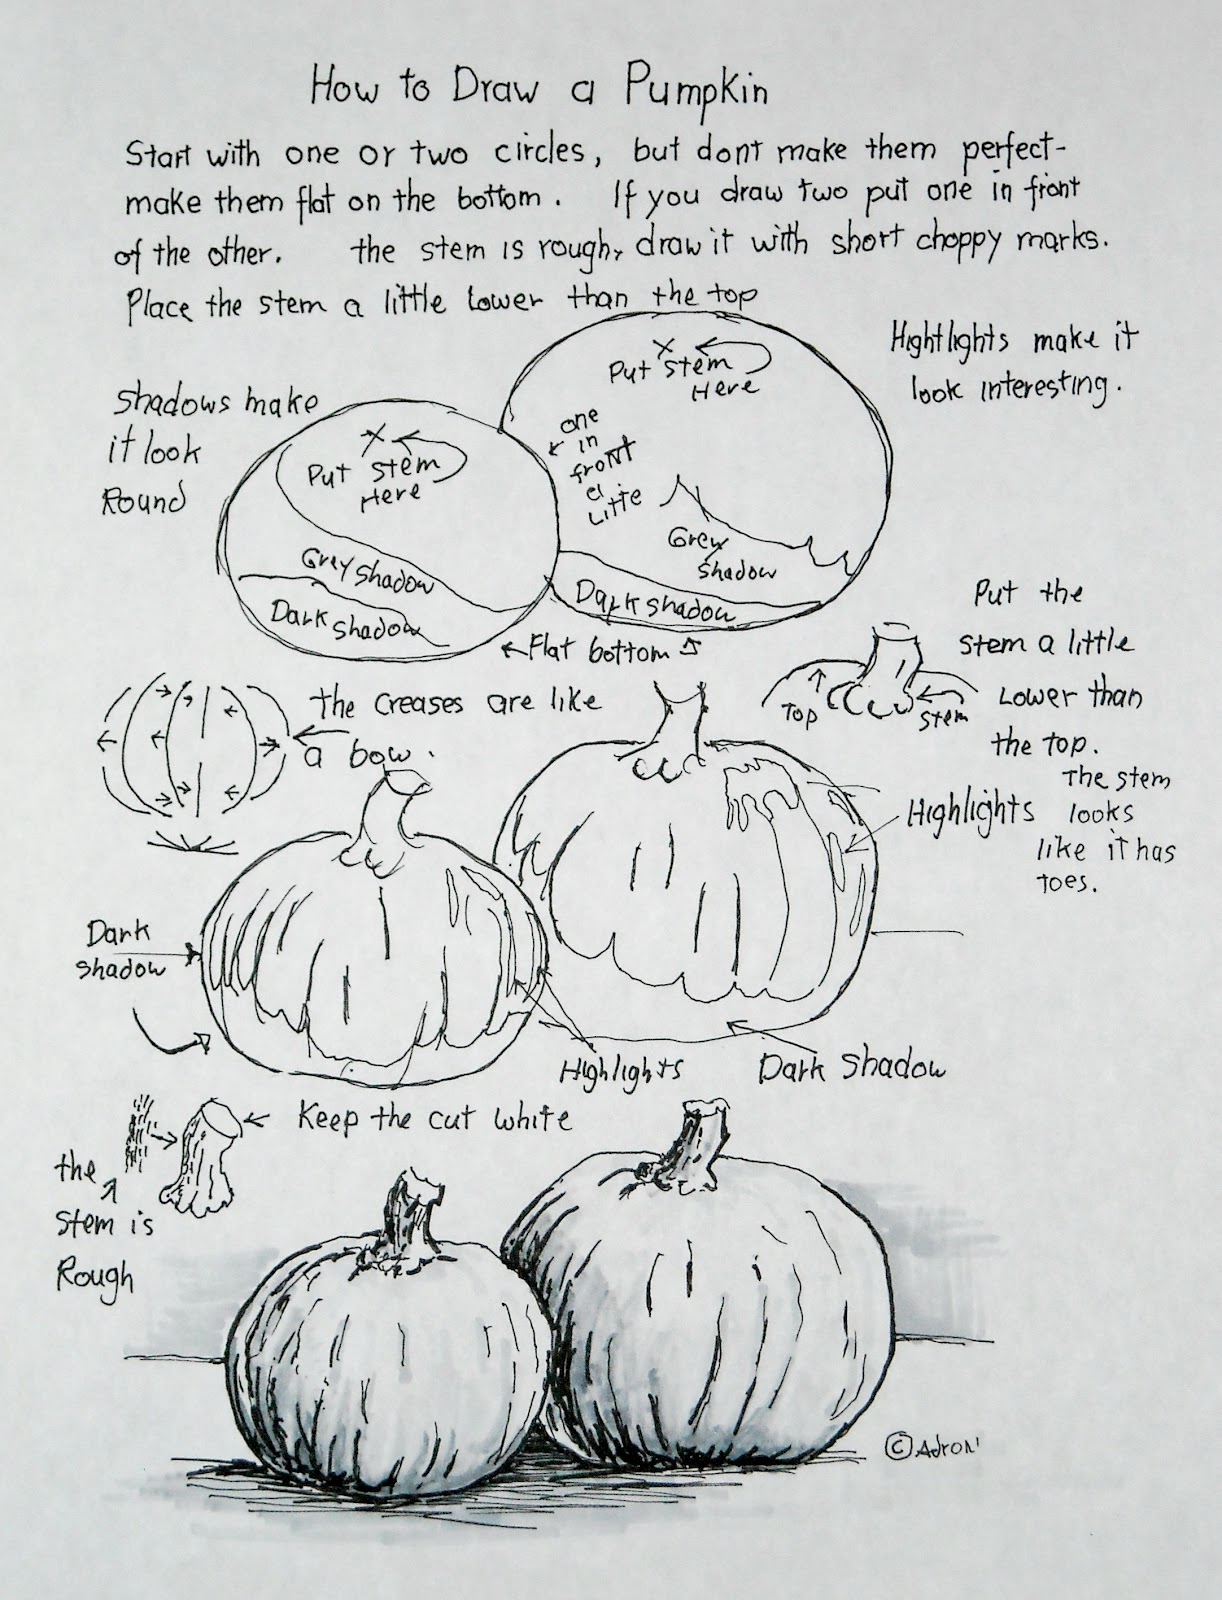 How to Draw a Pumpkin
Start with one or two circles, but dont make them perfect-
make them flat on the bottom. If you draw two put one in front
of the other. the stem is rough, draw it with short choppy marks.
Place the stem a little lower than the top
Hightlights make it
look interesting.
Shadows make
it look
Round
X
Put stem
Here
one
in
front
a
Little
X
Put stem
Here
Grey
Shadow
Grey Shadow
Dark shadow
Dark
Shadow
Flat bottom
Put the
stem a little
Lower than
the top.
The stem
looks
like it has
toes.
Top
Stem
the creases are like
a bow.
Highlights
Dark
shadow
Highlights
Dark Shadow
Keep the cut white
the
stem is
Rough
© Adron